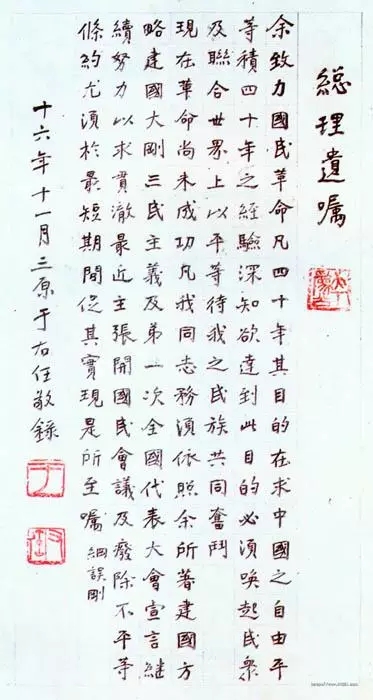 總理遺囑
余致力國民革命凡四十年其目的在求中國之自由平
等積四十年之經驗深知欲達到此目的必須喚起民眾
及聯合世界上以平等待我之民族共同奮鬥
現在革命尚未成功凡我同志務須依照余所著建國方
略建國大剛三民主義及弟一次全國代表大會宣言継
續努力以求貫澈最近主張開國民會議及廢除不平等
條約尤須於最短期間促其實現是所至囑 綱誤剛
十六年十一月三原于右任敬錄